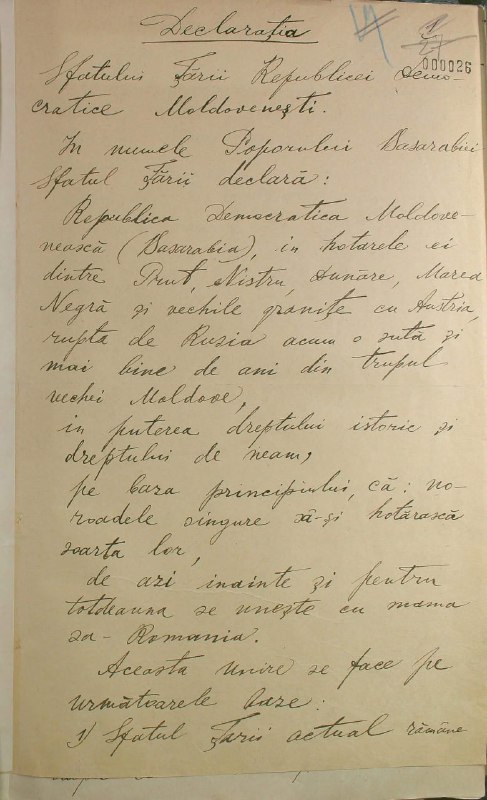 Declarația
000026
Sfatului Țării Republicei Demo-
cratice Moldovenești.
In numele Poporului Basarabiei
Sfatul Țării declară:
Republica Democratica Moldove-
nească (Basarabia), in hotarele ei
dintre Prut, Nistru, Dunare, Marea
Negră și vechile granițe cu Austria,
rupta de Rusia acum o sută și
mai bine de ani din trupul
vechei Moldove,
in puterea dreptului istoric și
dreptului de neam,
pe baza principiului, că: no-
roadele singure să-și hotărască
soarta lor,
de azi inainte și pentru
totdeauna se unește cu mama
sa - Romania.
Aceasta unire se face pe
următoarele baze:
1) Sfatul Țarii actual rămâne